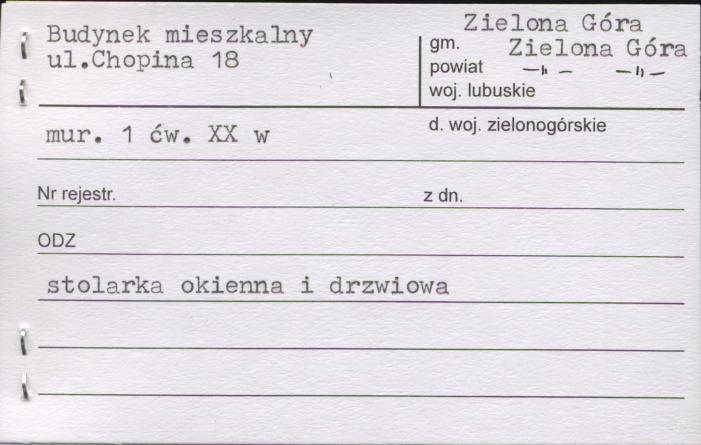 Budynek mieszkalny
ul.Chopina 18
Zielona Góra
gm. Zielona Góra
powiat —"— —"—
woj. lubuskie
mur. 1 ćw. XX w
d. woj. zielonogórskie
Nr rejestr. z dn.
ODZ
stolarka okienna i drzwiowa